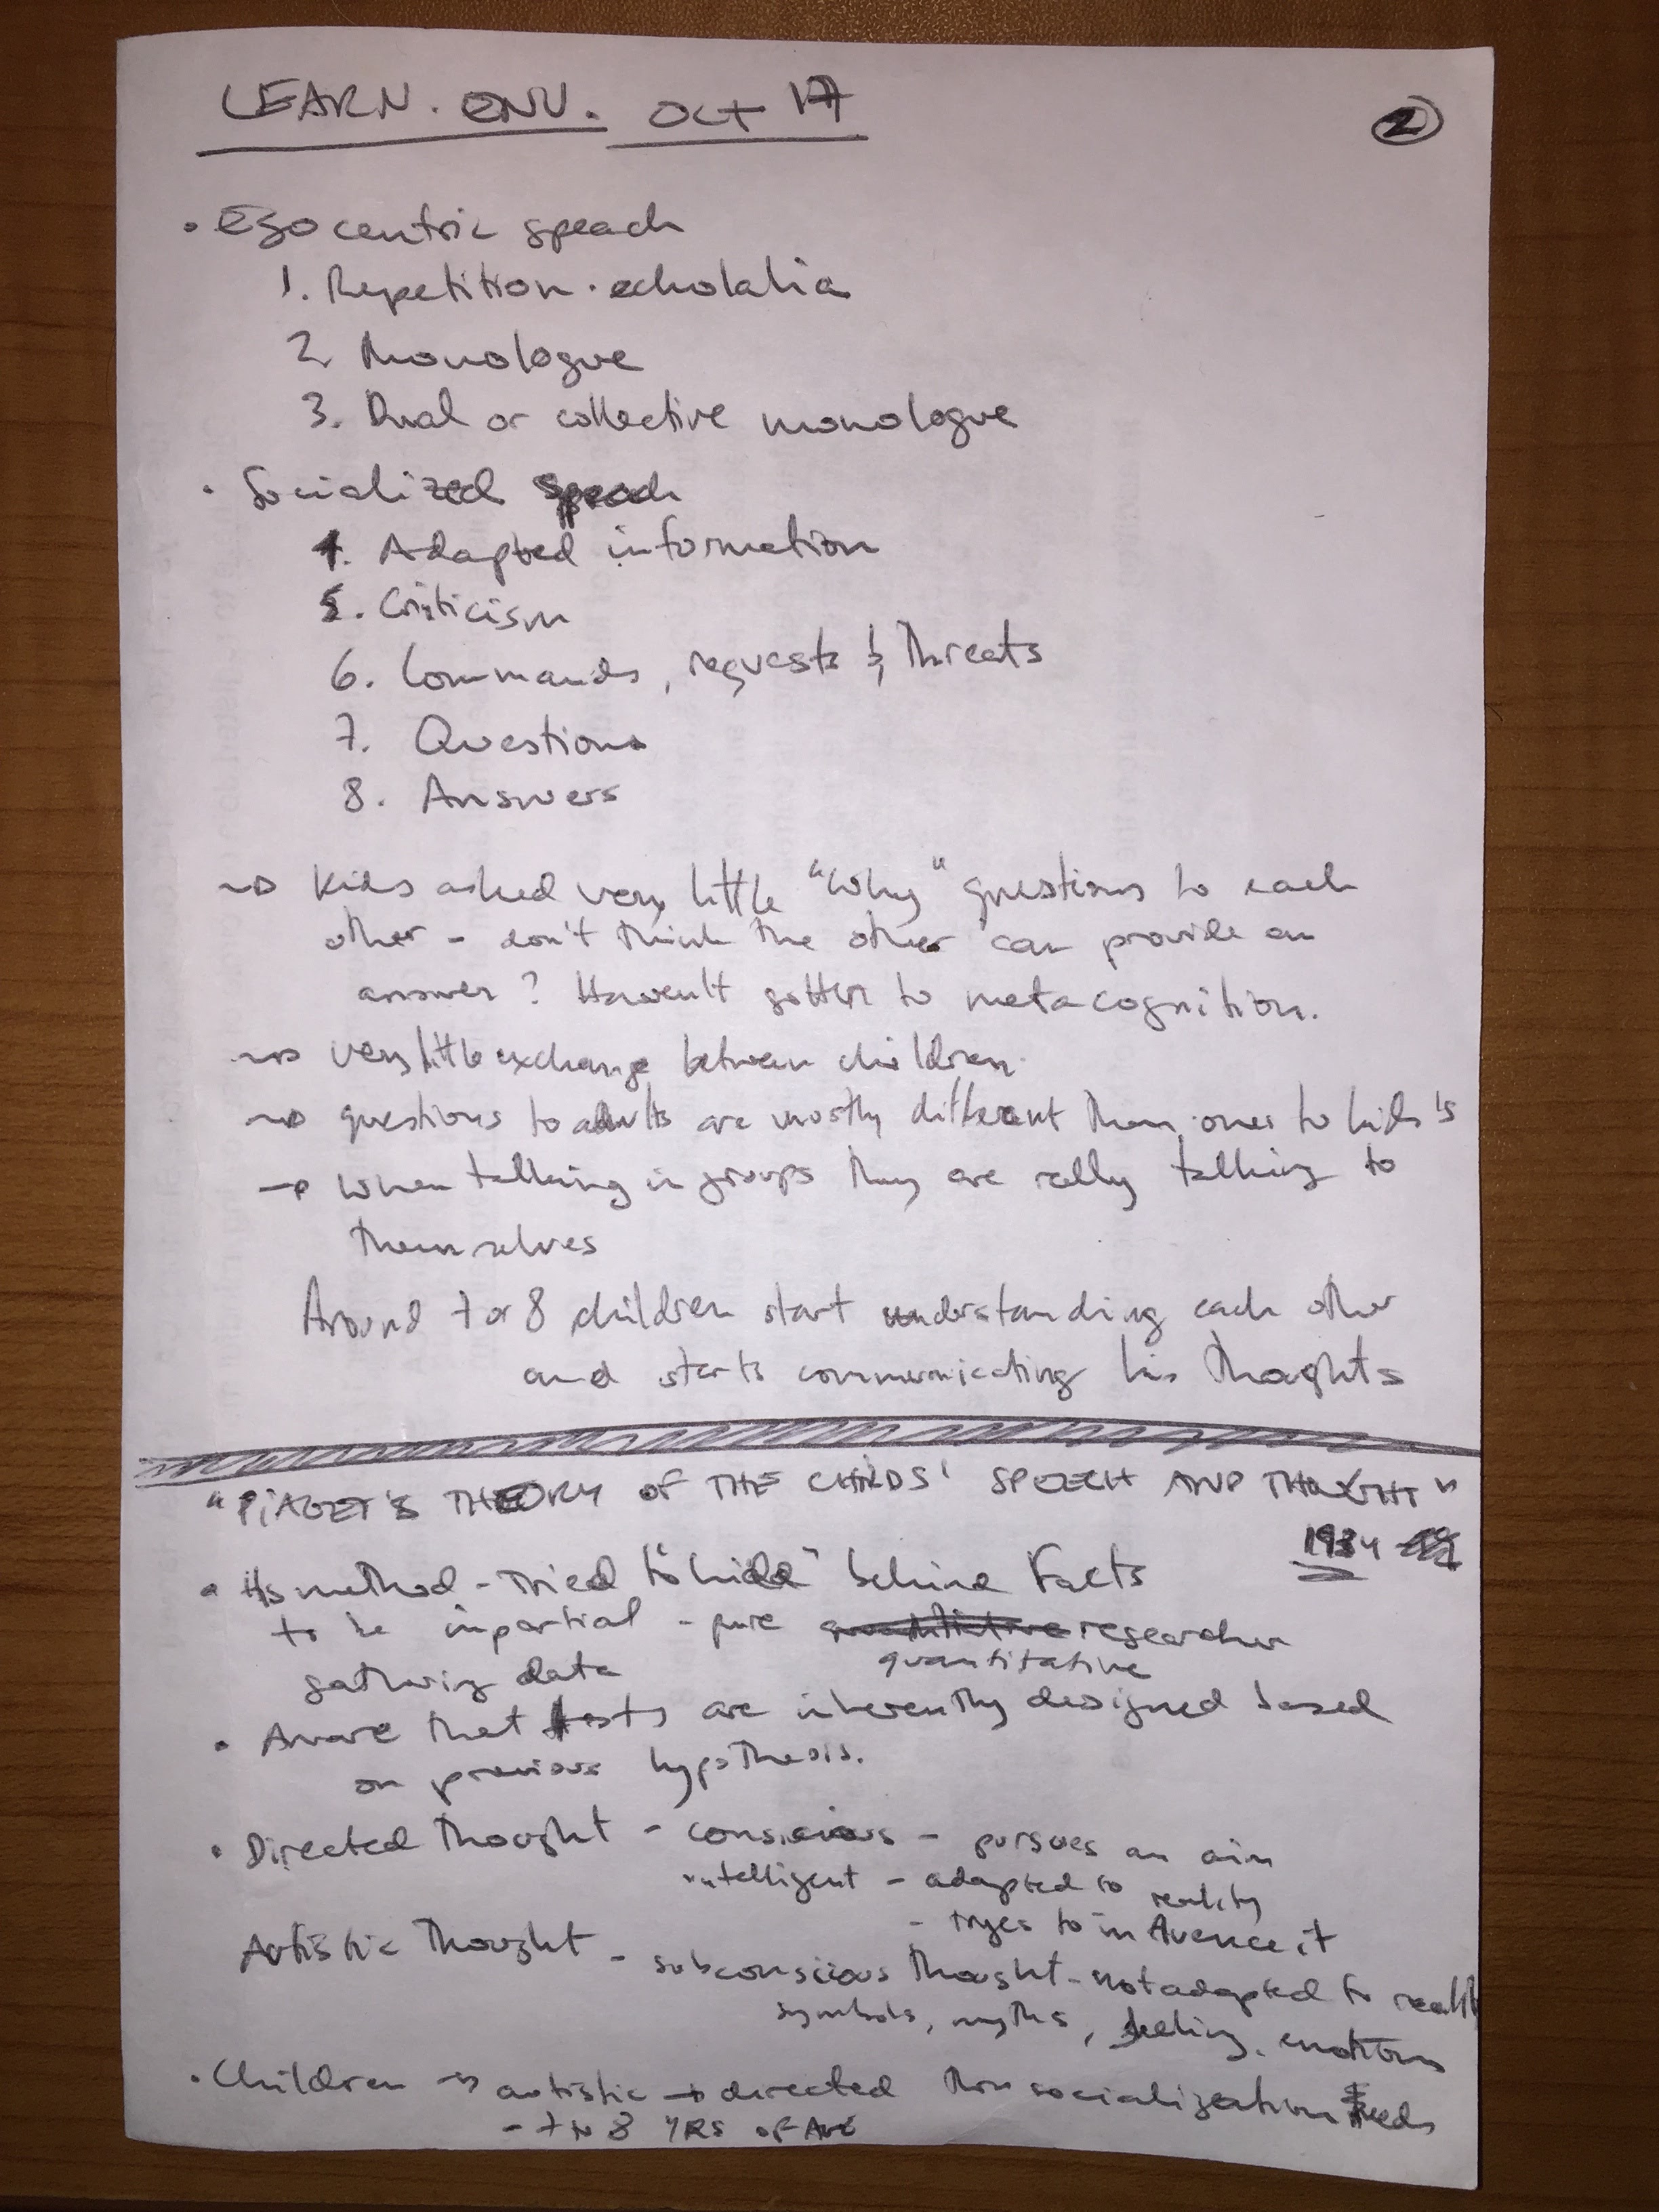 LEARN. ENV. Oct 17
2
• Egocentric speach
1. Repetition. echolalia
2. Monologue
3. Dual or collective monologue
• Socialized speach
4. Adapted information
5. Criticism
6. Commands, requests & threats
7. Questions
8. Answers
→ Kids asked very little "why" questions to each
other - don't think the other can provide an
answer? Haven't gotten to metacognition.
→ very little exchange between children.
→ questions to adults are mostly different than ones to kid's
→ when talking in groups they are really talking to
themselves
Around 7 or 8 children start understanding each other
and starts communicating his thoughts
"PIAGET'S THEORY OF THE CHILDS' SPEECH AND THOUGHT"
1934
• His method - tried to "hide" behind facts
to be impartial - pure researcher
quantitative
gathering data
• Aware that tests are inherently designed based
on previous hypothesis.
• Directed thought - conscious - pursues an aim
intelligent - adapted to reality
- tryes to influence it
Autistic thought - subconscious thought - not adapted to reality
symbols, myths, feeling, emotions
• Children → autistic → directed thru socialization needs
- 7 to 8 YRS OF AGE